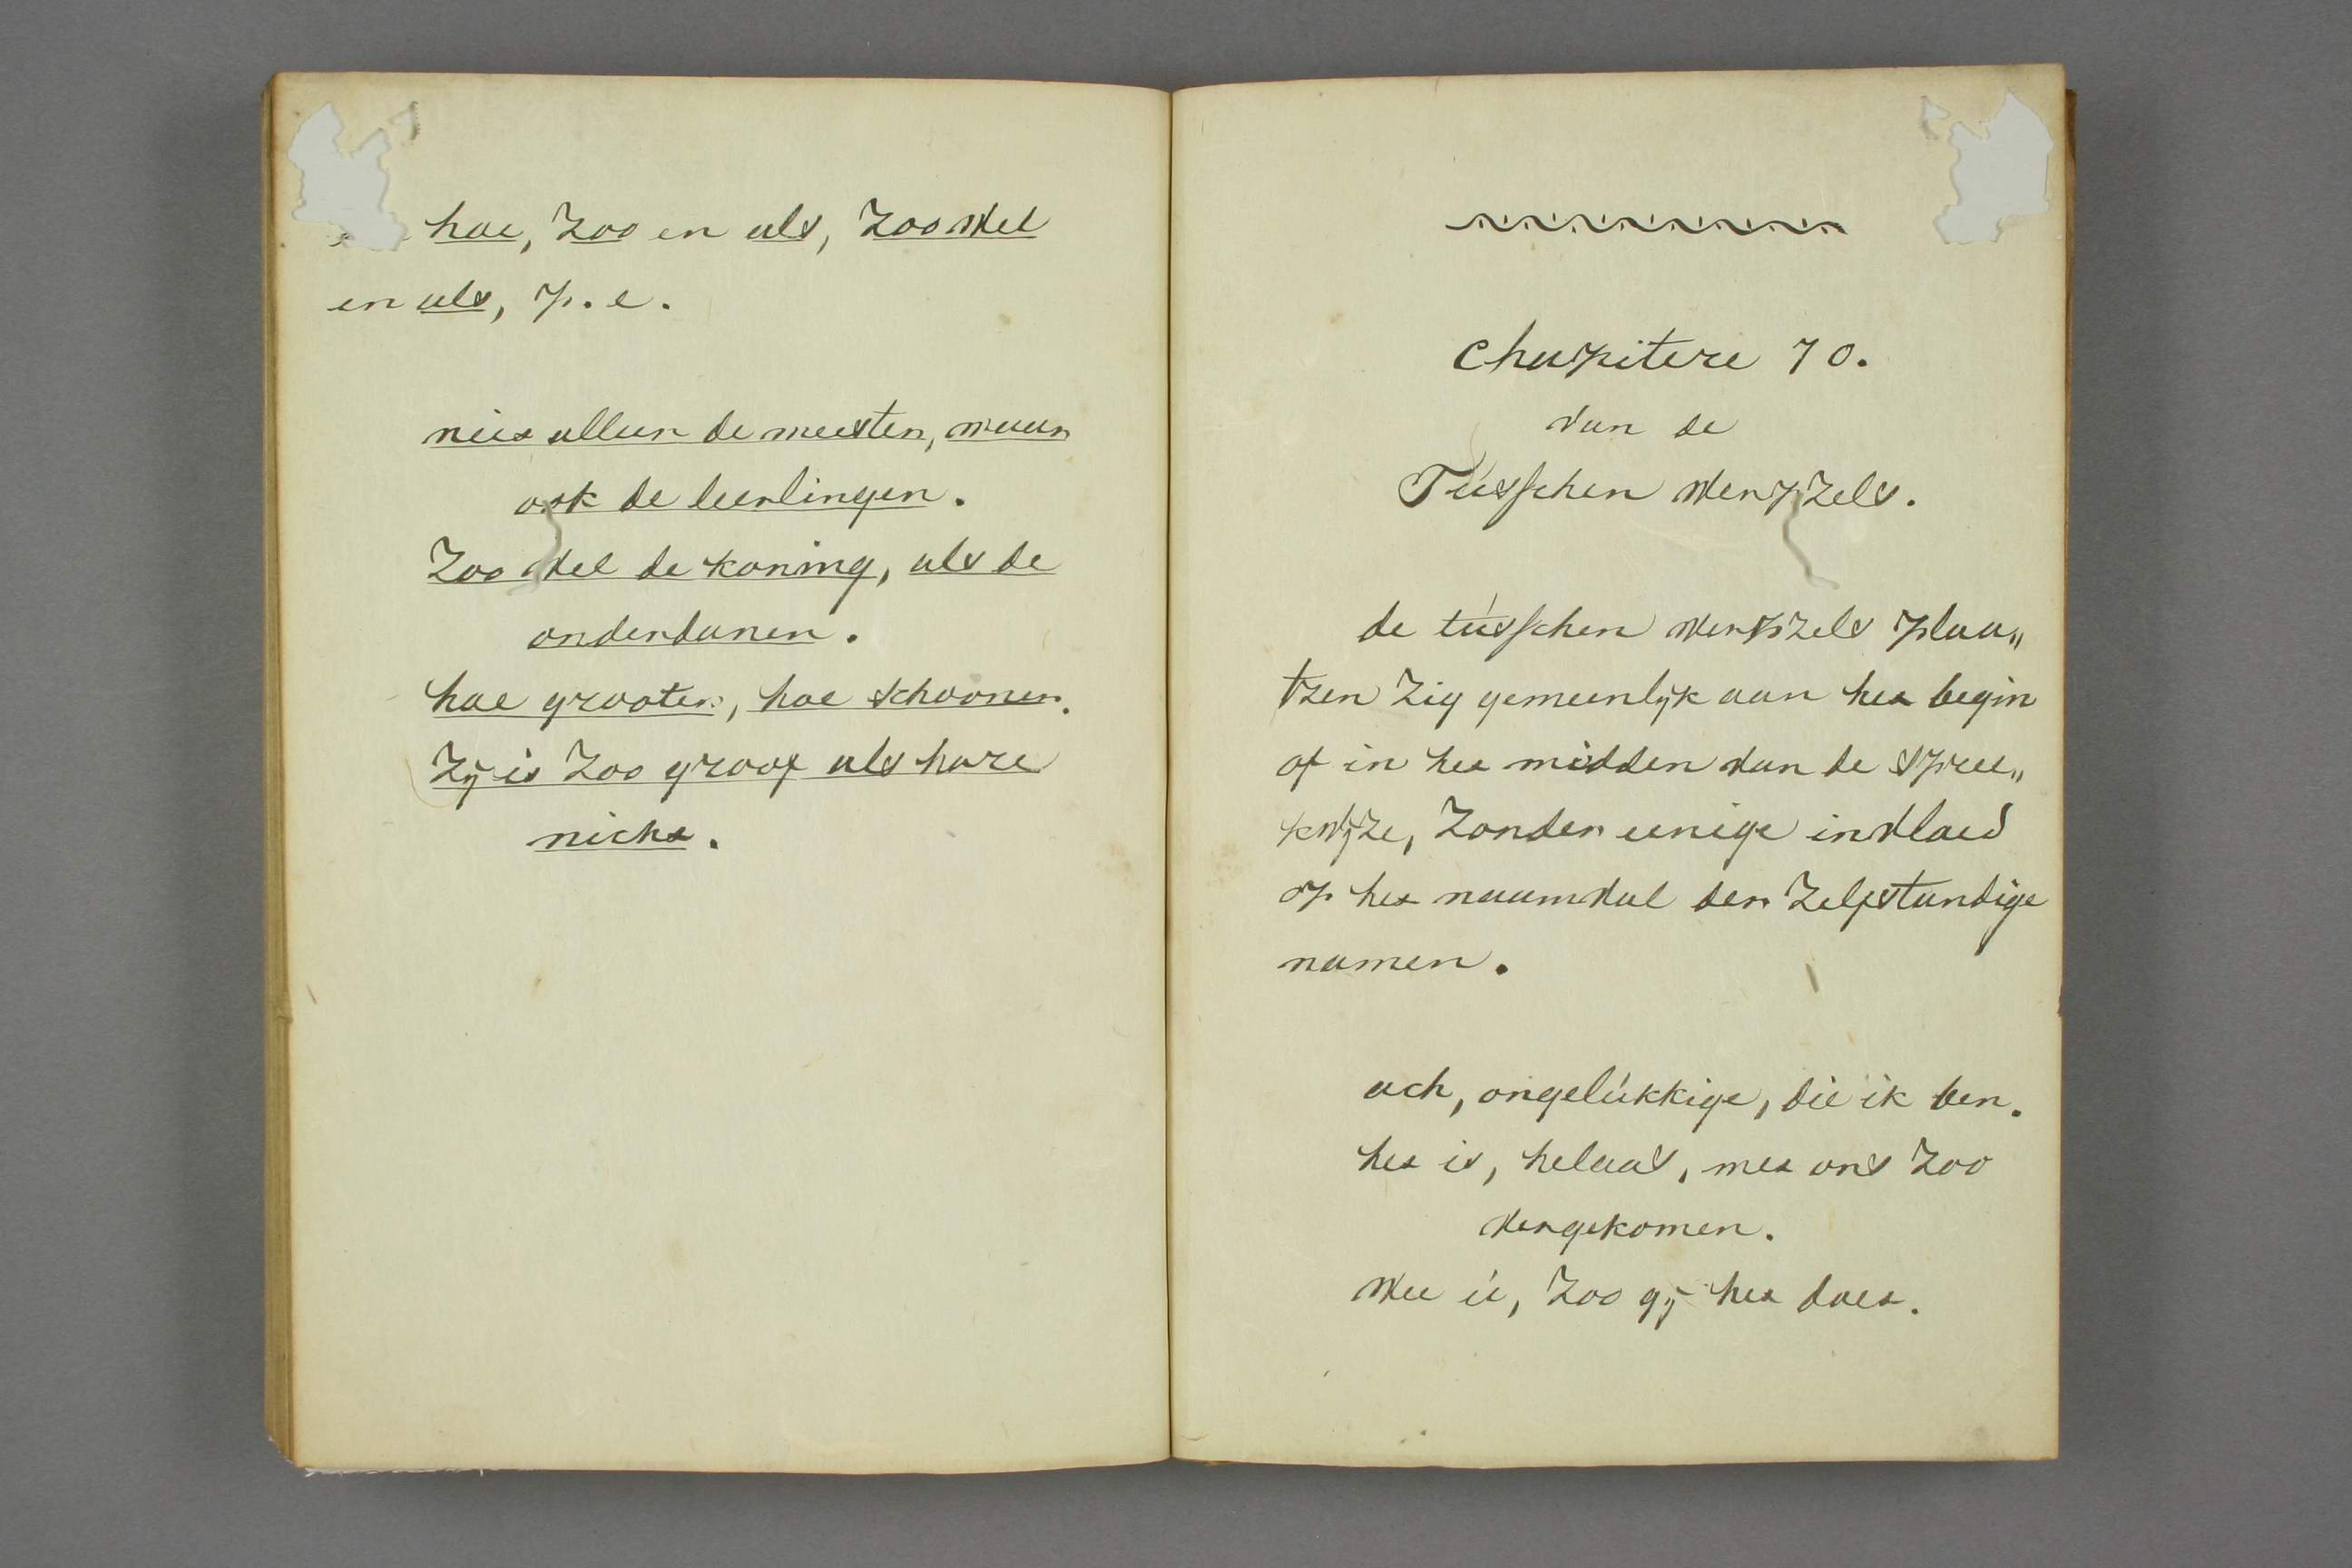 hoe, Zoo en als, Zoo wel
en als, p. e.
niet alleen de meester, maar
ook de leerlingen.
Zoo wel de koning, als de
onderdanen.
hoe grooter, hoe schooner.
Zij is Zoo groot als hare
nicht.
Chapitere 10.
van de
Tússchen werpzels.
de tússchen werpzels plaa„
tzen Zig gemeenlijk aan het begin
of in het midden van de spree„
kwijze, Zonder eenige invloed
op het naamval der Zelfstandige
namen.
ach, ongelúkkige, die ik ben.
het is, helaas, met ons Zoo
vergekomen.
Wee ú, Zoo gij het doet.